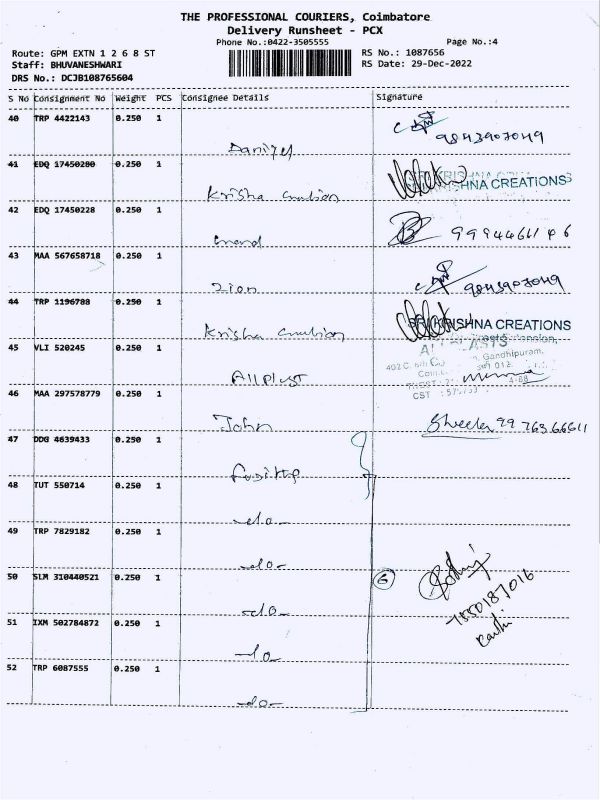 THE PROFESSIONAL COURIERS, Coimbatore
Delivery Runsheet - PCX
Phone No.:0422-3505555 Page No.:4
Route: GPM EXTN 1 2 6 8 ST RS No.: 1087656
Staff: BHUVANESHWARI RS Date: 29-Dec-2022
DRS No.: DCJB108765604
S No Consignment No Weight PCS Consignee Details Signature
40 TRP 4422143 0.250 1
9843907049
41 EDQ 17450280 0.250 1
SRI KRISHNA CREATIONS
Krisha
42 EDQ 17450228 0.250 1
43 MAA 567658718 0.250 1
Zion 9843907049
44 TRP 1196788 0.250 1
SRI KRISHNA CREATIONS
Krisha
45 VLI 520245 0.250 1
Gandhipuram,
Allplast
46 MAA 297578779 0.250 1
John Sheela 99 763 66611
47 DDG 4639433 0.250 1
48 TUT 550714 0.250 1
-do-
49 TRP 7829182 0.250 1
-do-
50 SLM 310440521 0.250 1 6
-do- 7550187016
51 IXM 502784872 0.250 1
-do-
52 TRP 6087555 0.250 1
-do-